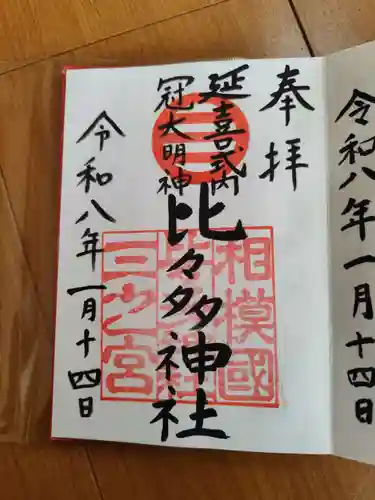 奉拝
延喜式内
冠大明神
比々多神社
相模國
三之宮
令和八年一月十四日
令和八年一月十四日